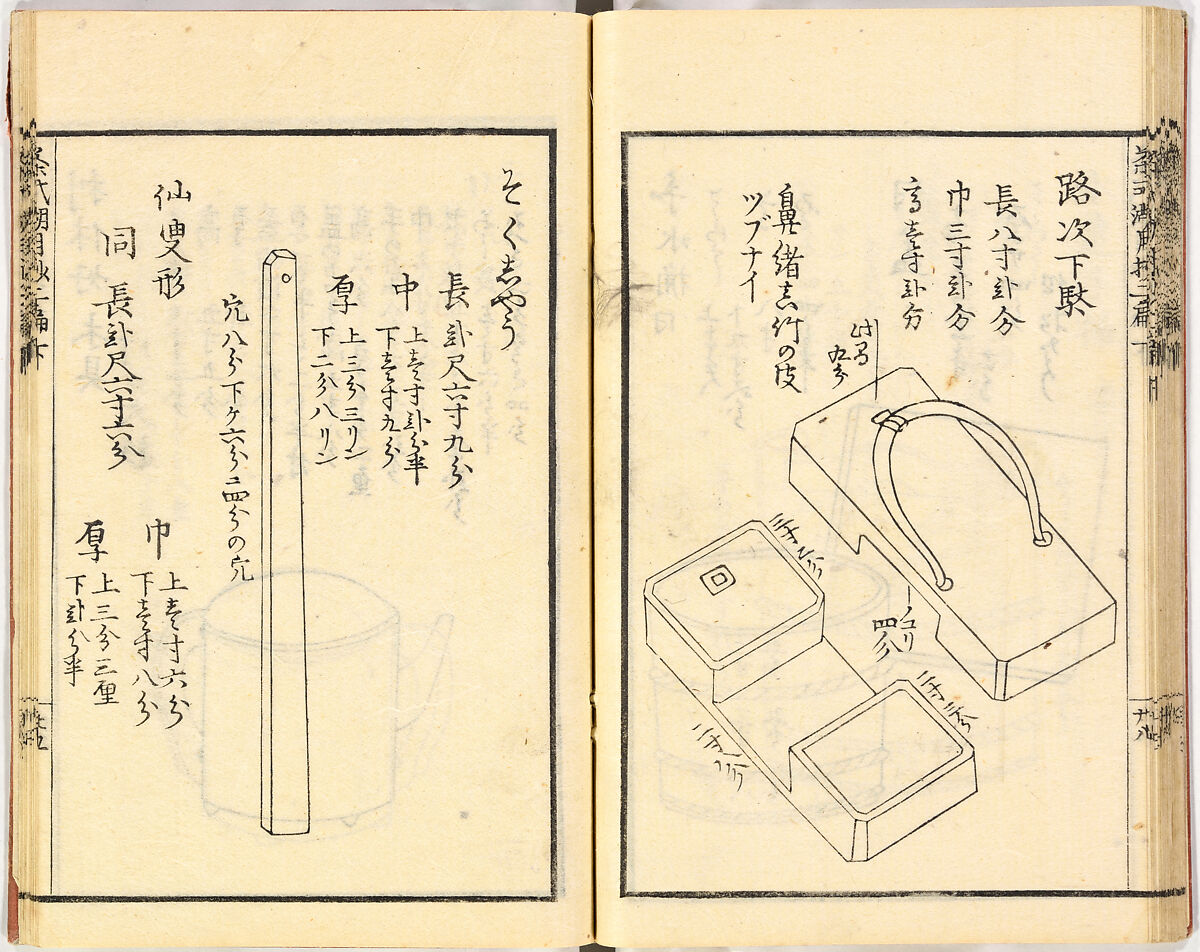 路次下駄
長八寸弐分
巾三寸弐分
高壱寸弐分
鼻緒真竹の皮
ツブナイ
此
九分
ノコリ
四分
そくしやう
長弐尺六寸九分
巾
上壱寸弐分半
下壱寸九分
厚
上三分三リン
下二分八リン
穴八分下ケ六分ニ四分の穴
仙叟形
同
長弐尺六寸六分
巾
上壱寸六分
下壱寸八分
厚
上三分三厘
下弐分半
廿八